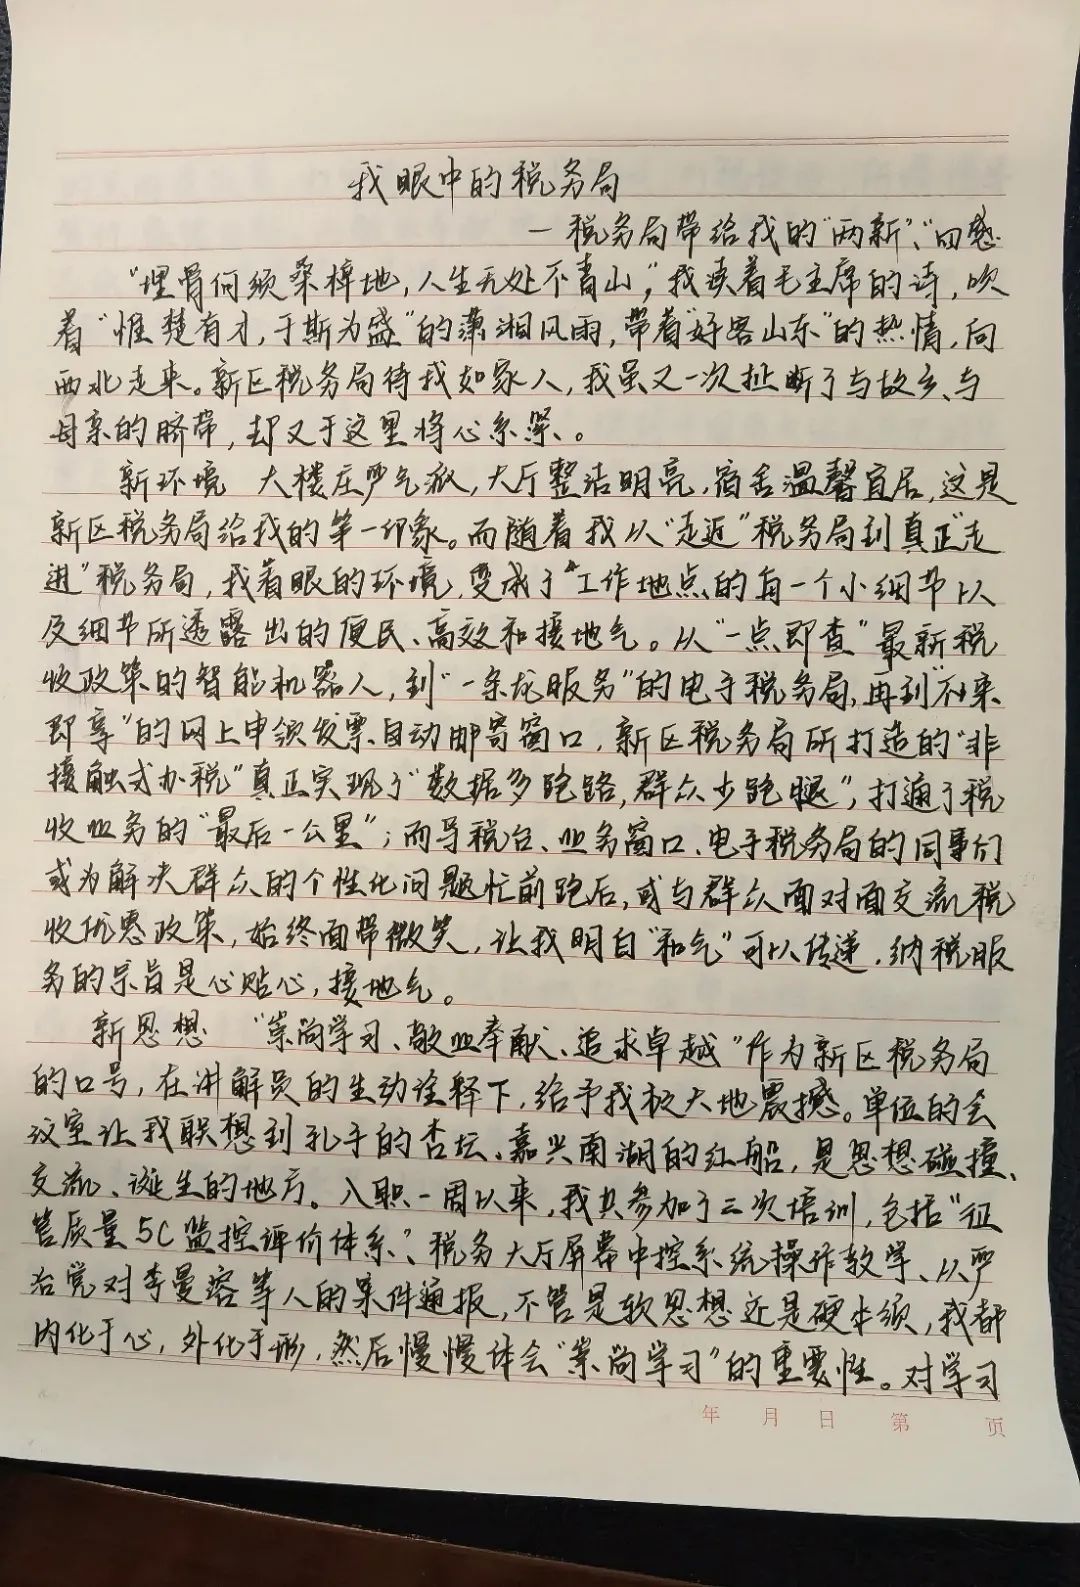 我眼中的税务局
—税务局带给我的“两新”、“四感
“埋骨何须桑梓地，人生无处不青山”，我读着毛主席的诗，吹
着“惟楚有才，于斯为盛”的潇湘风雨，带着“好客山东”的热情，向
西北走来。新区税务局待我如家人，我虽又一次扯断了与故乡、与
母亲的脐带，却又于这里将心系紧、。
新环境 大楼庄严气派，大厅整洁明亮，宿舍温馨宜居，这是
新区税务局给我的第一印象。而随着我从“走近”税务局到真正“走
进”税务局，我着眼的环境，变成了“工作地点的每一个小细节以
及细节所透露出的便民、高效和接地气。从“一点即查”最新税
收政策的智能机器人，到“一条龙服务”的电子税务局，再到“不来
即享”的网上申领发票、自动邮寄窗口，新区税务局所打造的“非
接触式办税”真正实现了“数据多跑路，群众少跑腿”，打通了税
收业务的“最后一公里”；而导税台、业务窗口、电子税务局的同事们
或为解决群众的个性化问题忙前跑后，或与群众面对面交流税
收优惠政策，始终面带微笑，让我明白“和气”可以传递，纳税服
务的宗旨是心贴心，接地气。
新思想 “崇尚学习、敬业奉献、追求卓越”作为新区税务局
的口号，在讲解员的生动诠释下，给予我极大地震撼。单位的会
议室让我联想到孔子的杏坛、嘉兴南湖的红船，是思想碰撞、
交流、诞生的地方。入职一周以来，我共参加了三次培训，包括“征
管质量5C监控评价体系”、税务大厅屏幕中控系统操作教学、从严
治党对李曼容等人的案件通报，不管是软思想还是硬本领，我都
内化于心，外化于形，然后慢慢体会“崇尚学习”的重要性。对学习
年 月 日 第 页